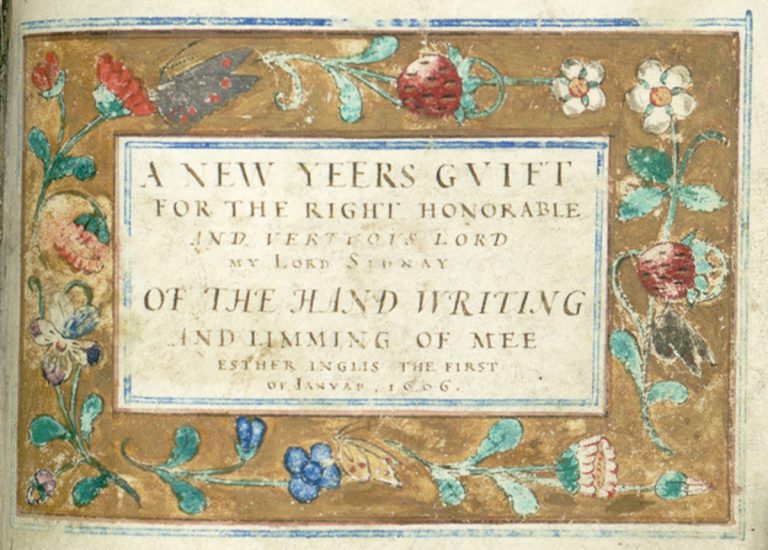 A NEW YEERS GVIFT
FOR THE RIGHT HONORABLE
AND VERTUOUS LORD
MY LORD SIDNAY
OF THE HAND WRITING
AND LIMMING OF MEE
ESTHER INGLIS THE FIRST
OF IANVAR, 1606.